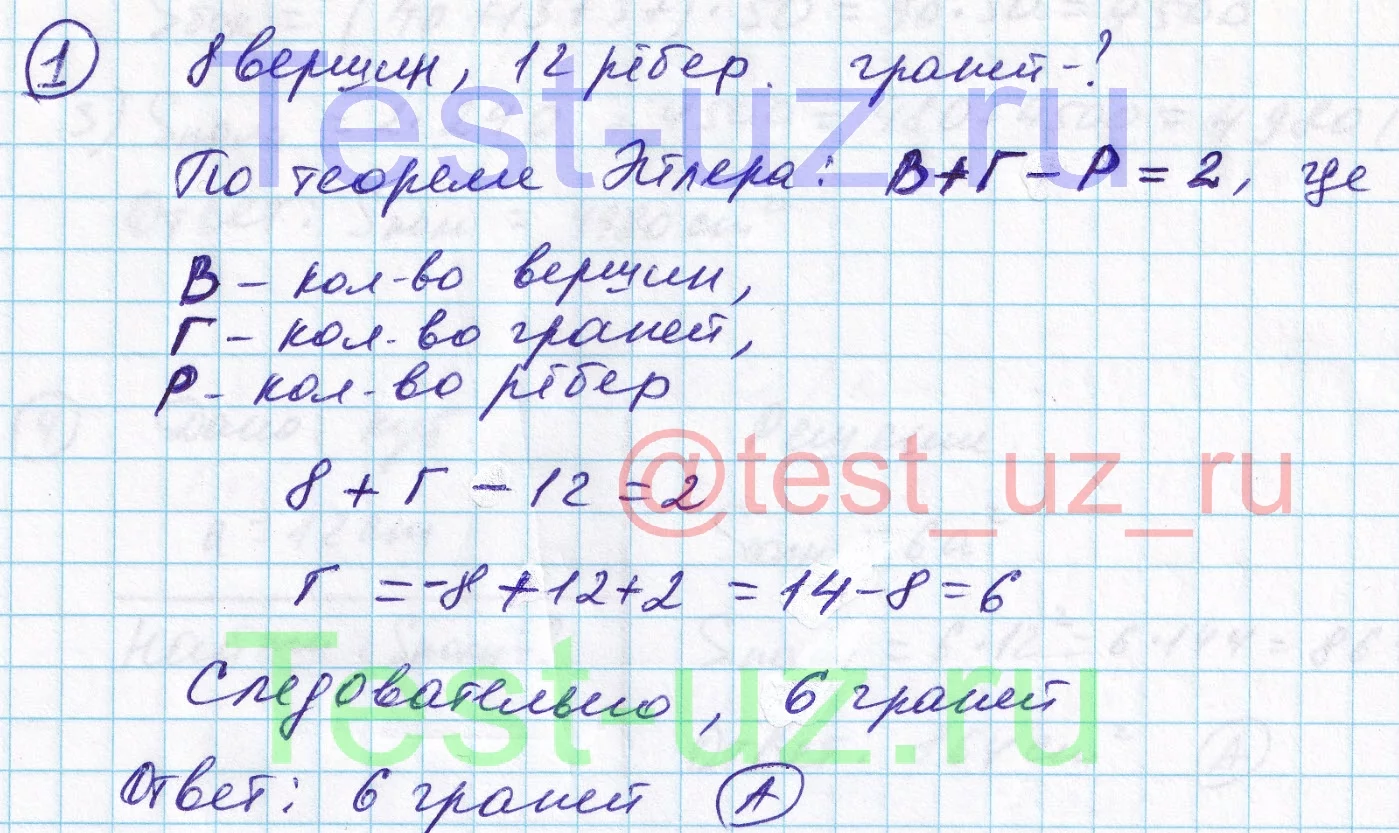 1 8 вершин, 12 рёбер. граней-?
Test-uz.ru
По теореме Эйлера: В+Г-Р=2, где
В - кол-во вершин,
Г - кол-во граней,
Р - кол-во рёбер
@test_uz_ru
8+Г-12=2
Г=-8+12+2=14-8=6
Test-uz.ru
Следовательно, 6 граней
Ответ: 6 граней А